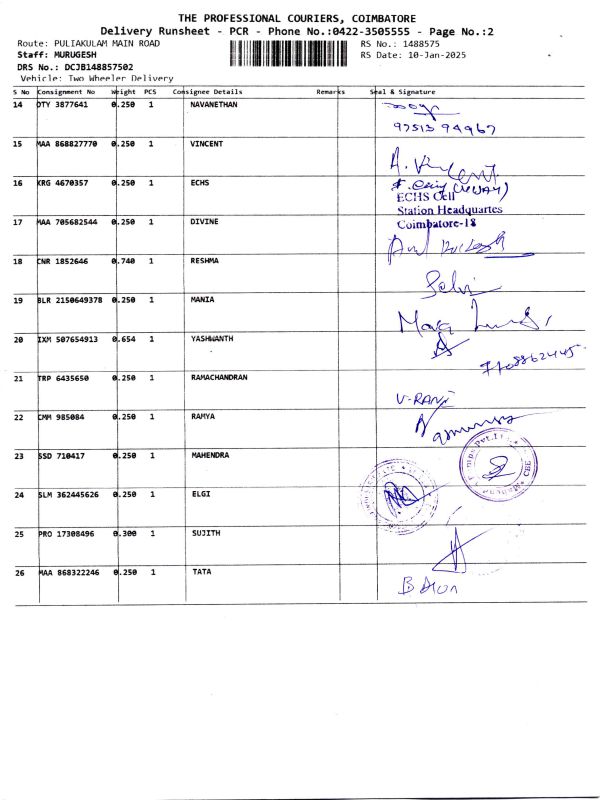 THE PROFESSIONAL COURIERS, COIMBATORE
Delivery Runsheet - PCR - Phone No.:0422-3505555 - Page No.:2
Route: PULIAKULAM MAIN ROAD
RS No.: 1488575
Staff: MURUGESH
RS Date: 10-Jan-2025
DRS No.: DCJB148857502
Vehicle: Two Wheeler Delivery
S No Consignment No Weight PCS Consignee Details Remarks Seal & Signature
14 DTY 3877641 0.250 1 NAVANETHAN
97513 94967
15 MAA 868827770 0.250 1 VINCENT
A. Vincent
16 KRG 4670357 0.250 1 ECHS
ECHS Cell
Station Headquartes
17 MAA 705682544 0.250 1 DIVINE Coimbatore-18
18 CNR 1852646 0.740 1 RESHMA
Selvi
19 BLR 2150649378 0.250 1 MANIA
20 IXM 507654913 0.654 1 YASHWANTH
21 TRP 6435650 0.250 1 RAMACHANDRAN
V-RANI
22 CMM 985084 0.250 1 RAMYA
23 SSD 710417 0.250 1 MAHENDRA
24 SLM 362445626 0.250 1 ELGI
25 PRO 17308496 0.300 1 SUJITH
26 MAA 868322246 0.250 1 TATA